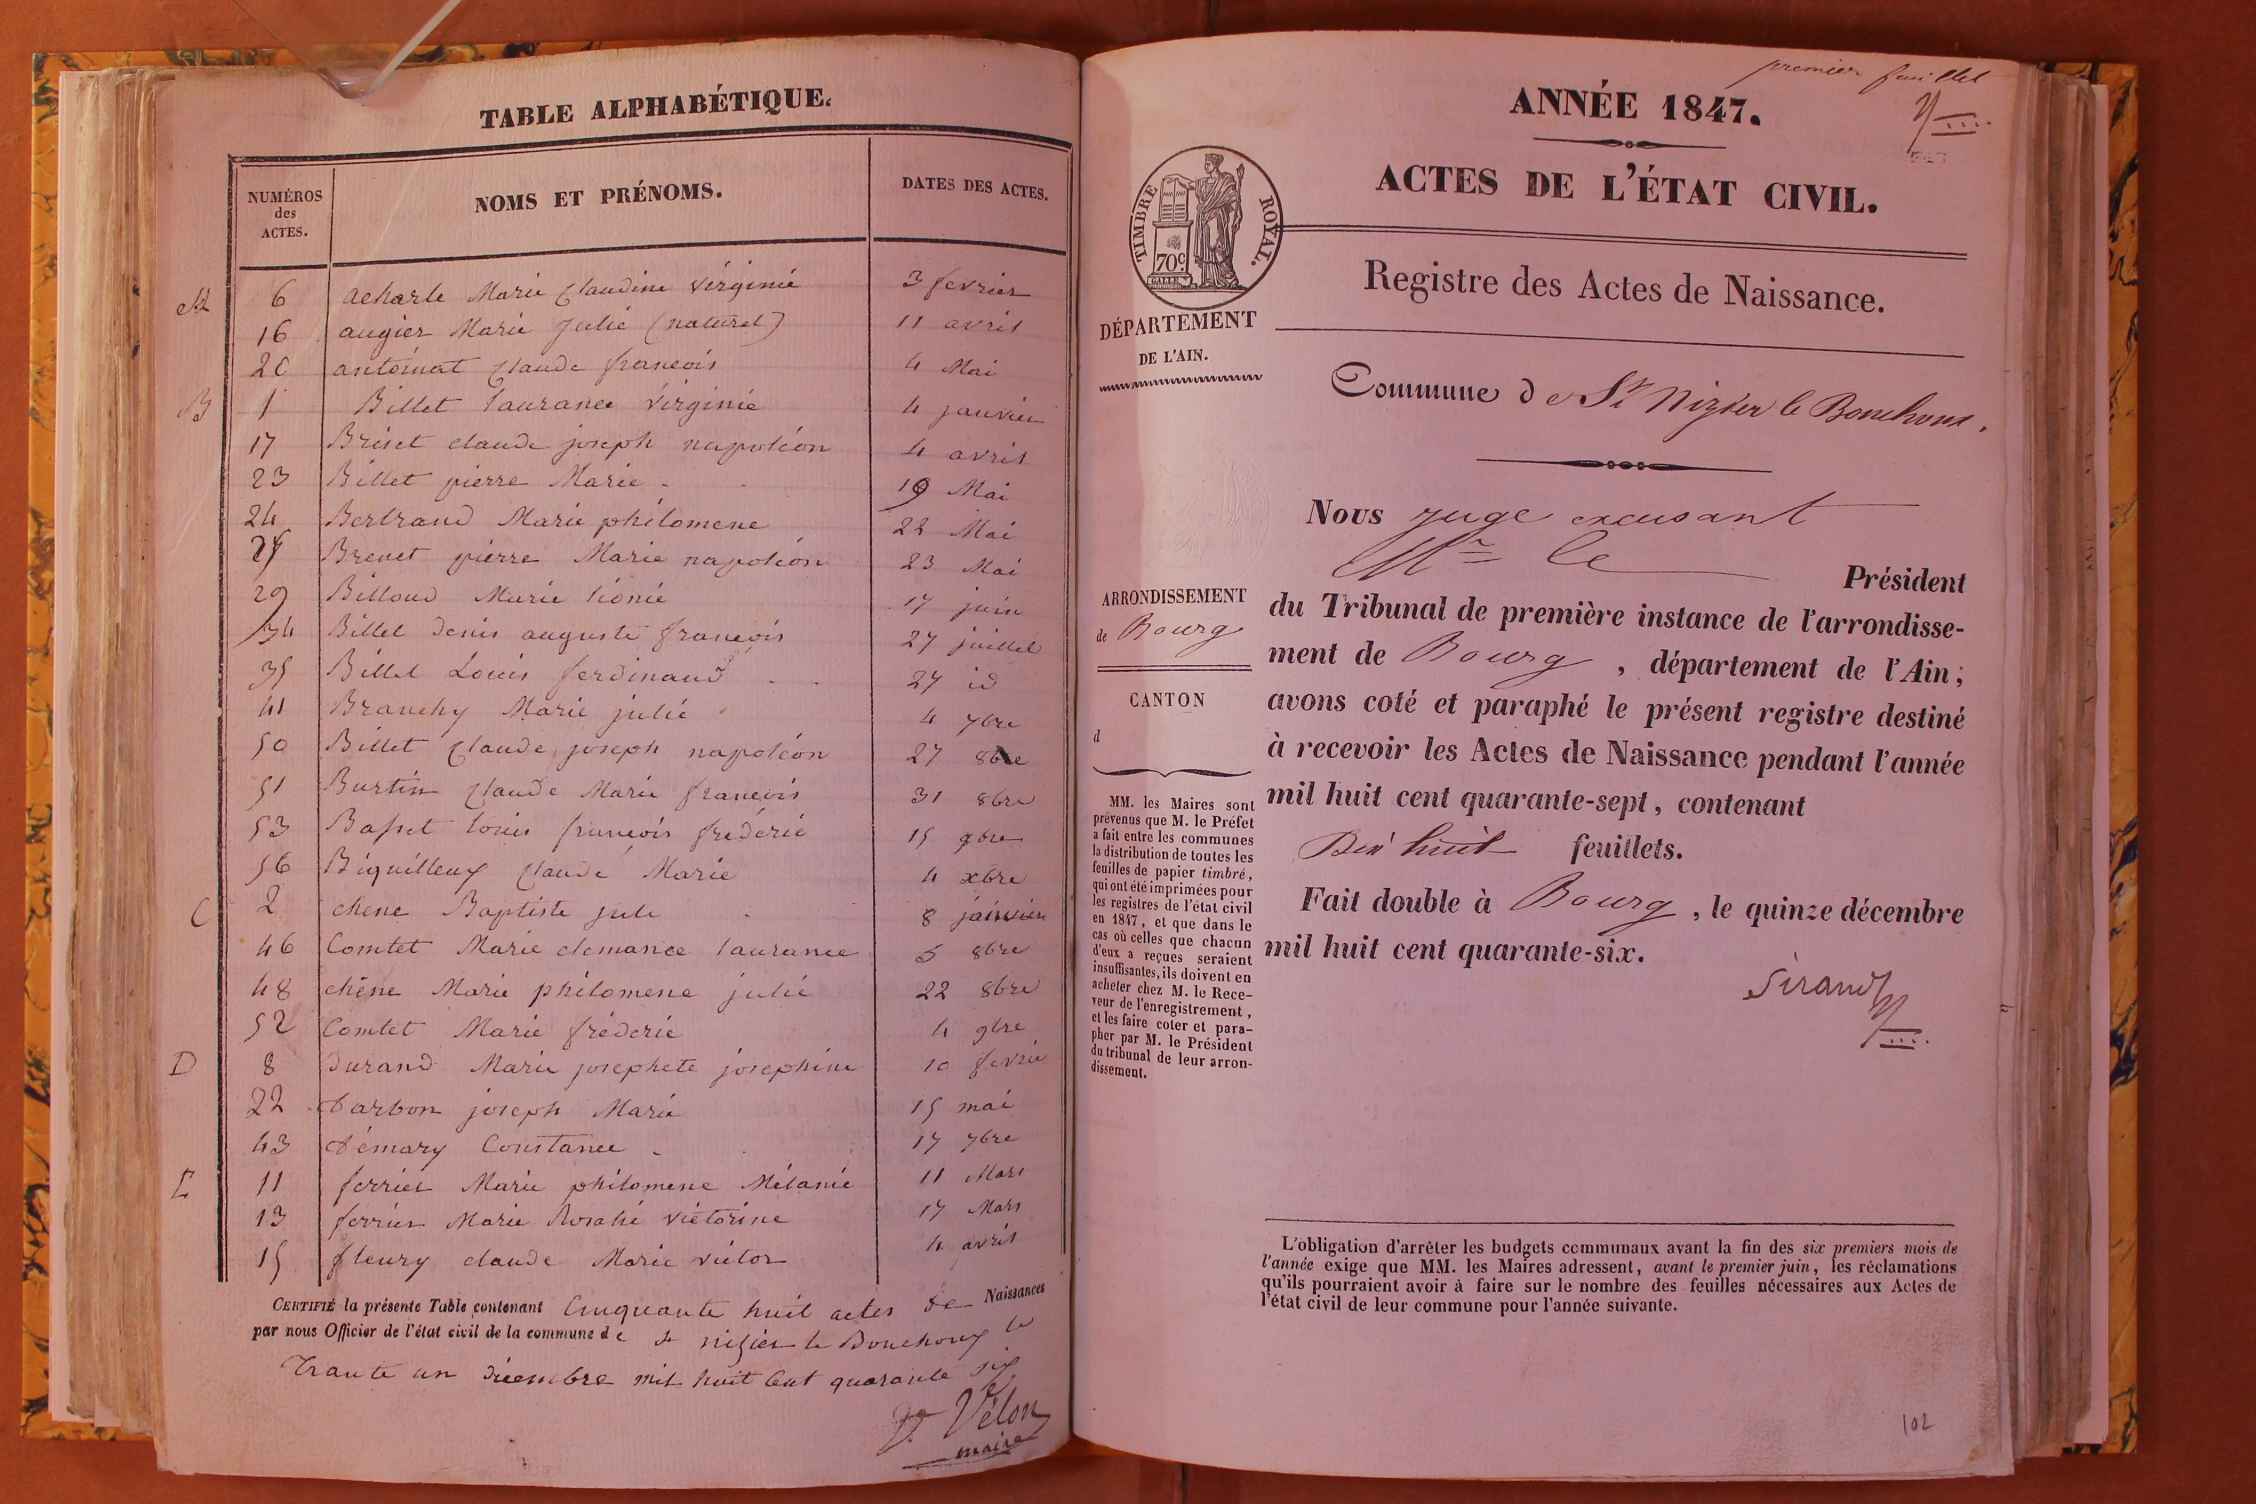 TABLE ALPHABÉTIQUE.
NUMÉROS des ACTES. NOMS ET PRÉNOMS. DATES DES ACTES.
A 6 acharle Marie Claudine Virginie 3 fevrier
16 augier Marie Julie (naturel) 11 avril
20 antoinat Claude francois 4 Mai
B 1 Billet Laurance Virginie 4 janvier
17 Briset claude joseph napoléon 4 avril
23 Billet pierre Marie 19 Mai
24 Bertrand Marie philomene 22 Mai
25 Brevet pierre Marie napoléon 23 Mai
29 Billoud Marie Léonie 17 juin
34 Billet denis auguste francois 27 juillet
35 Billet Louis ferdinand 27 id
41 Branchy Marie julie 4 7bre
50 Billet Claude joseph napoléon 27 8bre
51 Burtin Claude Marie francois 31 8bre
53 Basset louis francois fréderic 15 9bre
56 Biguilleux Claude Marie 4 xbre
C 2 chene Baptiste jule 8 janvier
46 Comtet Marie clemance laurance 5 8bre
48 chêne Marie philomene julie 22 8bre
52 Comtet Marie fréderic 4 9bre
D 8 durand Marie josephete josephine 10 fevrie
22 darbon joseph Marie 15 mai
43 démary Constance 17 7bre
11 ferrier Marie philomene Mélanie 11 Mars
13 ferrier Marie Rosalie victorine 17 Mars
15 fleury claude Marie victor 4 avril
CERTIFIÉ la présente Table contenant Cinquante huit actes de Naissances
par nous Officier de l'état civil de la commune de st nizier le Bouchoux le
Trante un décembre mil huit Cent quarante six
Vélon
maire
premier feuillet
ANNÉE 1847.
ACTES DE L'ÉTAT CIVIL.
TIMBRE ROYAL.
70c
Registre des Actes de Naissance.
DÉPARTEMENT
DE L'AIN.
Commune de St Nizier le Bouchoux.
Nous juge excusant
Mr le
Président
du Tribunal de première instance de l'arrondisse-
ment de Bourg, département de l'Ain;
avons coté et paraphé le présent registre destiné
à recevoir les Actes de Naissance pendant l'année
mil huit cent quarante-sept, contenant
Dix huit feuillets.
Fait double à Bourg, le quinze décembre
mil huit cent quarante-six.
Sirand
ARRONDISSEMENT
de Bourg
CANTON
d
MM. les Maires sont
prévenus que M. le Préfet
a fait entre les communes
la distribution de toutes les
feuilles de papier timbré,
qui ont été imprimées pour
les registres de l'état civil
en 1847, et que dans le
cas où celles que chacun
d'eux a reçues seraient
insuffisantes, ils doivent en
acheter chez M. le Rece-
veur de l'enregistrement,
et les faire coter et para-
pher par M. le Président
du tribunal de leur arron-
dissement.
L'obligation d'arrêter les budgets communaux avant la fin des six premiers mois de
l'année exige que MM. les Maires adressent, avant le premier juin, les réclamations
qu'ils pourraient avoir à faire sur le nombre des feuilles nécessaires aux Actes de
l'état civil de leur commune pour l'année suivante.
102